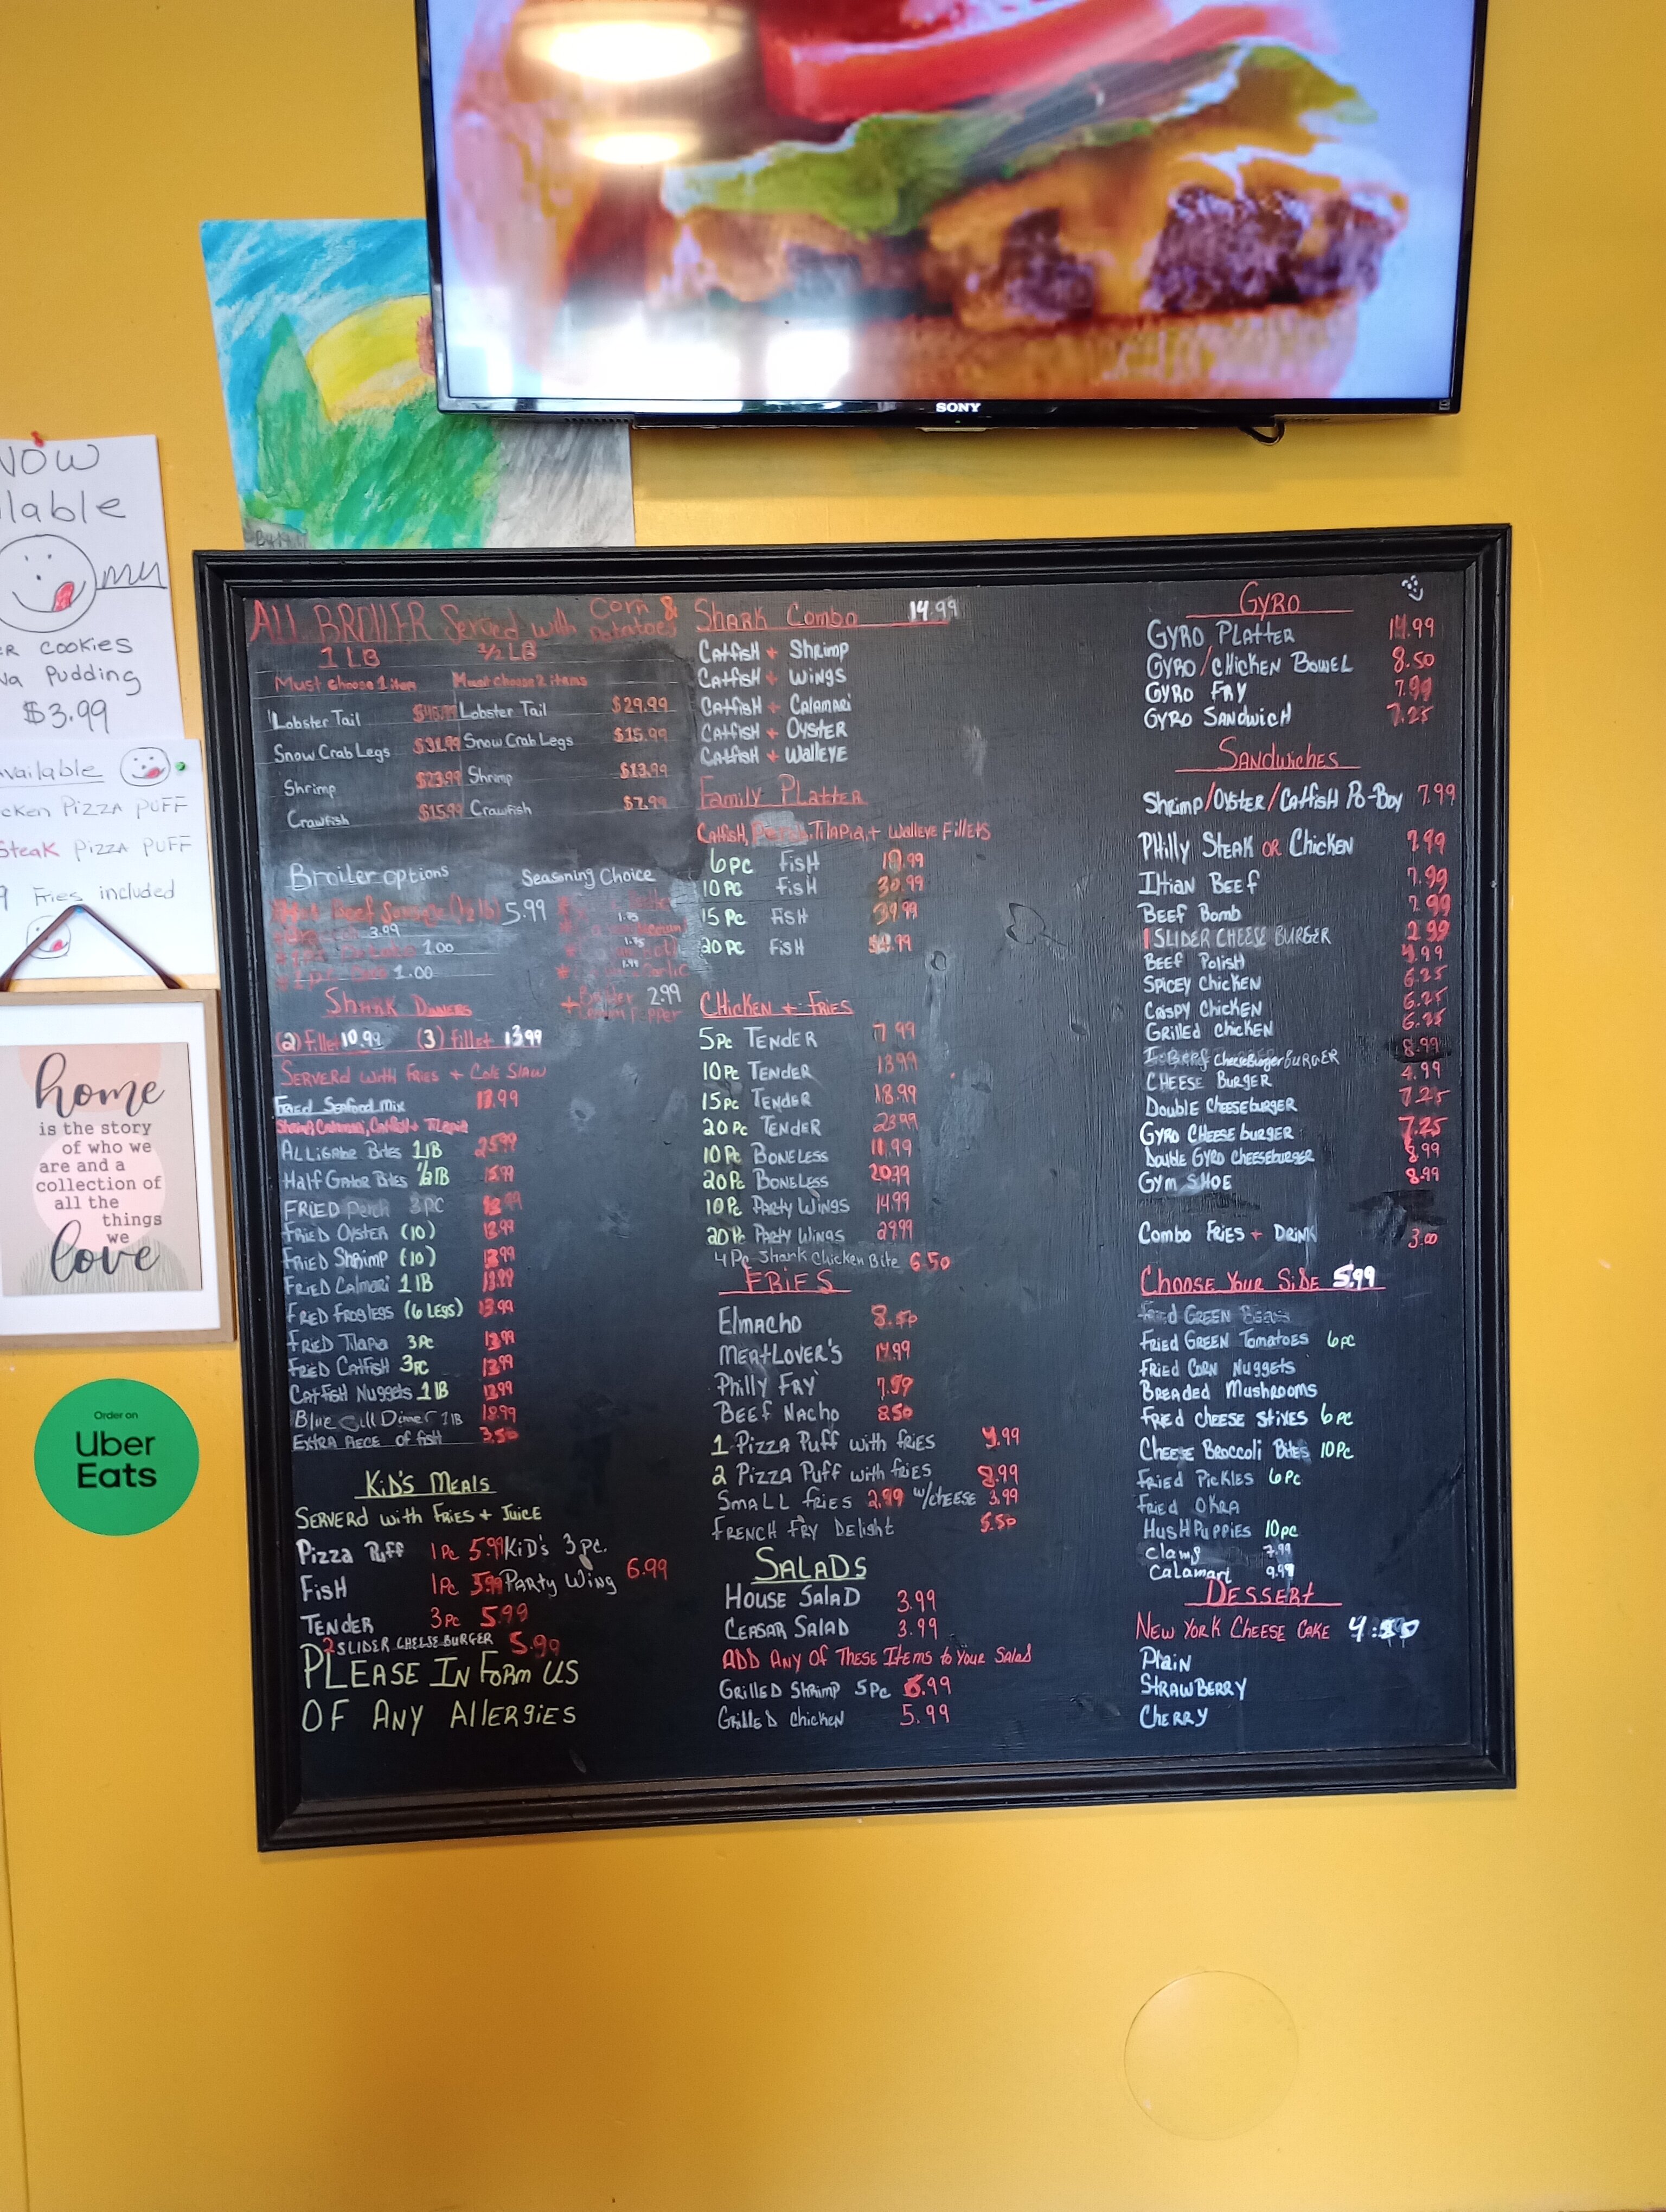 SONY
NOW
lable
mm
R COOKIES
Va Pudding
$3.99
vailable
cken PIZZA PUFF
Steak PIZZA PUFF
9 Fries included
home
is the story
of who we
are and a
collection of
all the
things
we
love
Order on
Uber
Eats
ALL BROILER Served with Corn & Potatoes
1 LB 1/2 LB
Must choose 1 item Must choose 2 items
Lobster Tail Lobster Tail $29.99
Snow Crab Legs $31.99 Snow Crab Legs $15.99
Shrimp $23.99 Shrimp $13.99
Crawfish $15.99 Crawfish $7.99
Broiler options Seasoning Choice
Beef Sausage (1/2 lb) 5.99
3.99
1.00
1.00
2.99
Shark Dinners
(2) fillet 10.99 (3) fillet 13.99
SERVERd with FRIES + Cole Slaw
Fried Seafood Mix 17.99
Shrimp, Calamari, Catfish + Tilapia
Alligator Bites 1 lB 25.99
Half Gator Bites 1/2 lB 15.99
FRIED Perch 3 PC
FRIED OYSTER (10) 13.99
FRIED Shrimp (10) 13.99
FRIED Calmari 1 lB 13.99
FRIED Froglegs (6 LEGS) 13.99
FRIED Tilapia 3 PC 13.99
FRIED CATFISH 3 PC 13.99
CATFISH Nuggets 1 lB 13.99
Blue Gill Dinner 1 lB 18.99
EXTRA PIECE OF FISH 3.50
KiD'S MEALS
SERVERd with FRIES + JUICE
Pizza Puff 1 Pc 5.99 KiD's 3 pc.
FISH 1 Pc 5.99 PARTY WING 6.99
TENDER 3 Pc 5.99
2 SLIDER CHEESE BURGER 5.99
PLEASE INFORM US
OF ANY AllERGIES
SHARK COMBO 14.99
CATFISH + SHRIMP
CATFISH + WINGS
CATFISH + CALAMARI
CATFISH + OYSTER
CATFISH + WALLEYE
Family Platter
Catfish, Perch, Tilapia, + Walleye Fillets
6 PC FISH 19.99
10 PC FISH 30.99
15 PC FISH 39.99
20 PC FISH
CHICKEN + FRIES
5 Pc TENDER 7.99
10 Pc TENDER 13.99
15 Pc TENDER 18.99
20 Pc TENDER 23.99
10 Pc BONELESS 11.99
20 Pc BONELESS 20.99
10 Pc PARTY WINGS 14.99
20 Pc PARTY WINGS 27.99
4 Pc Shark Chicken Bite 6.50
FRIES
Elmacho 8.50
MEATLOVER'S 14.99
Philly FRY 7.59
BEEF NACHO 8.50
1 PIZZA PUFF with fries
2 PIZZA PUFF with fries 8.99
SMALL fries 2.99 w/CHEESE 3.99
FRENCH FRY Delight 5.50
SALADS
HOUSE SALAD 3.99
CEASAR SALAD 3.99
ADD ANY OF THESE ITEMS to Your Salad
GRILLED SHRIMP 5 Pc 6.99
GRILLED CHICKEN 5.99
GYRO
GYRO PLATTER 14.99
GYRO/CHICKEN BOWEL 8.50
GYRO FRY 7.99
GYRO SANDWICH 7.25
SANDWICHES
Shrimp/Oyster/Catfish Po-Boy 7.99
PHilly STEAK OR Chicken 7.99
Itlian BEEF 7.99
BEEF Bomb 7.99
1 SLIDER CHEESE BURGER 2.99
BEEF Polish 4.99
SPICEY CHICKEN 6.25
CRISPY CHICKEN 6.25
GRILLED CHICKEN 6.25
I. Beef CheeseBurger BURGER 8.99
CHEESE BURGER 4.99
Double CHEESEBURGER 7.25
GYRO CHEESE BURGER 7.25
Double GYRO CHEESEBURGER 8.99
GYM SHOE 8.99
COMBO FRIES + DRINK 3.00
CHOOSE YOUR SIDE 5.99
Fried GREEN Beans
FRIED GREEN TOMATOES 6 pc
FRIED CORN NUGGETS
BREADED MUSHROOMS
FRIED CHEESE STIXES 6 pc
CHEESE BROCCOLI BITES 10 Pc
FRIED PICKLES 6 Pc
FRIED OKRA
HUSH PUPPIES 10 pc
Clams 7.99
Calamari 9.99
DESSERT
NEW YORK CHEESE CAKE
PLAIN
STRAWBERRY
CHERRY